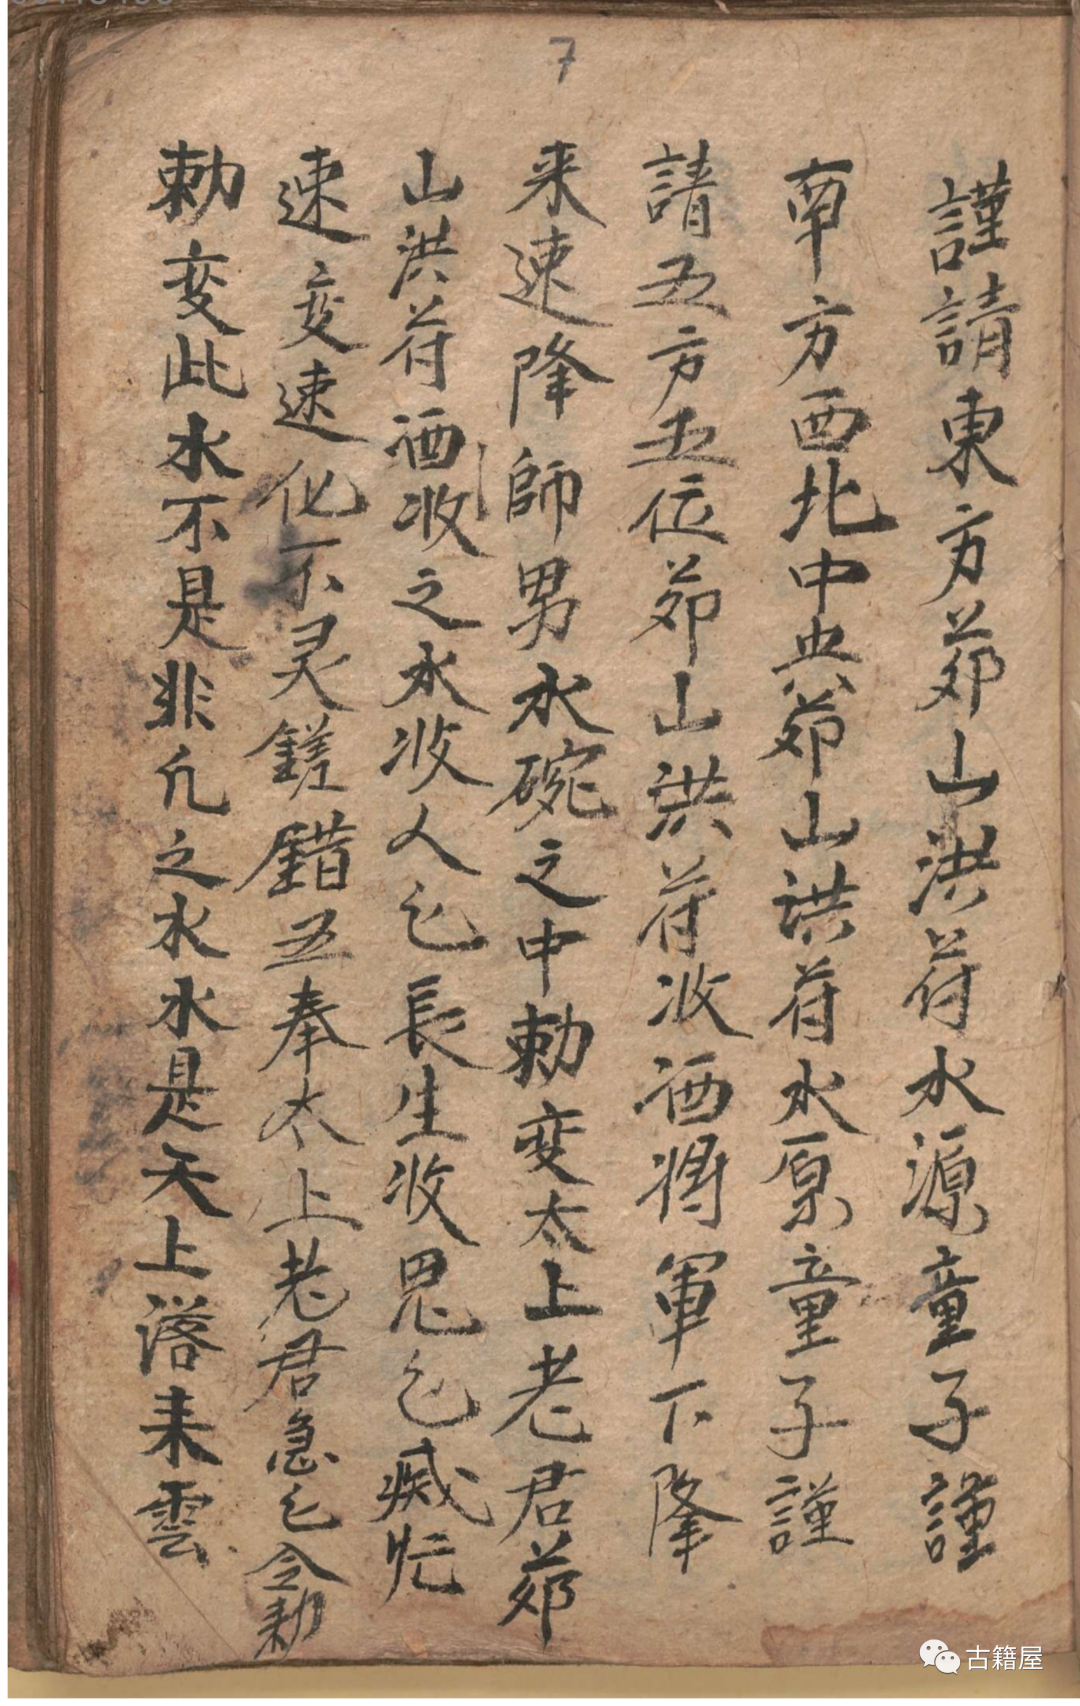 7
謹請東方茆山洪符水源童子謹
南方西北中央茆山洪符水原童子謹
請五方五位茆山洪符收洒將軍下降
来速降師男水碗之中勅变太上老君茆
山洪符洒收之水收人乞長生收鬼乞滅忙
速变速化不灵鎈錯五奉太上老君急乞令勅
勅变此水不是非凡之水水是天上落来雲
古籍屋